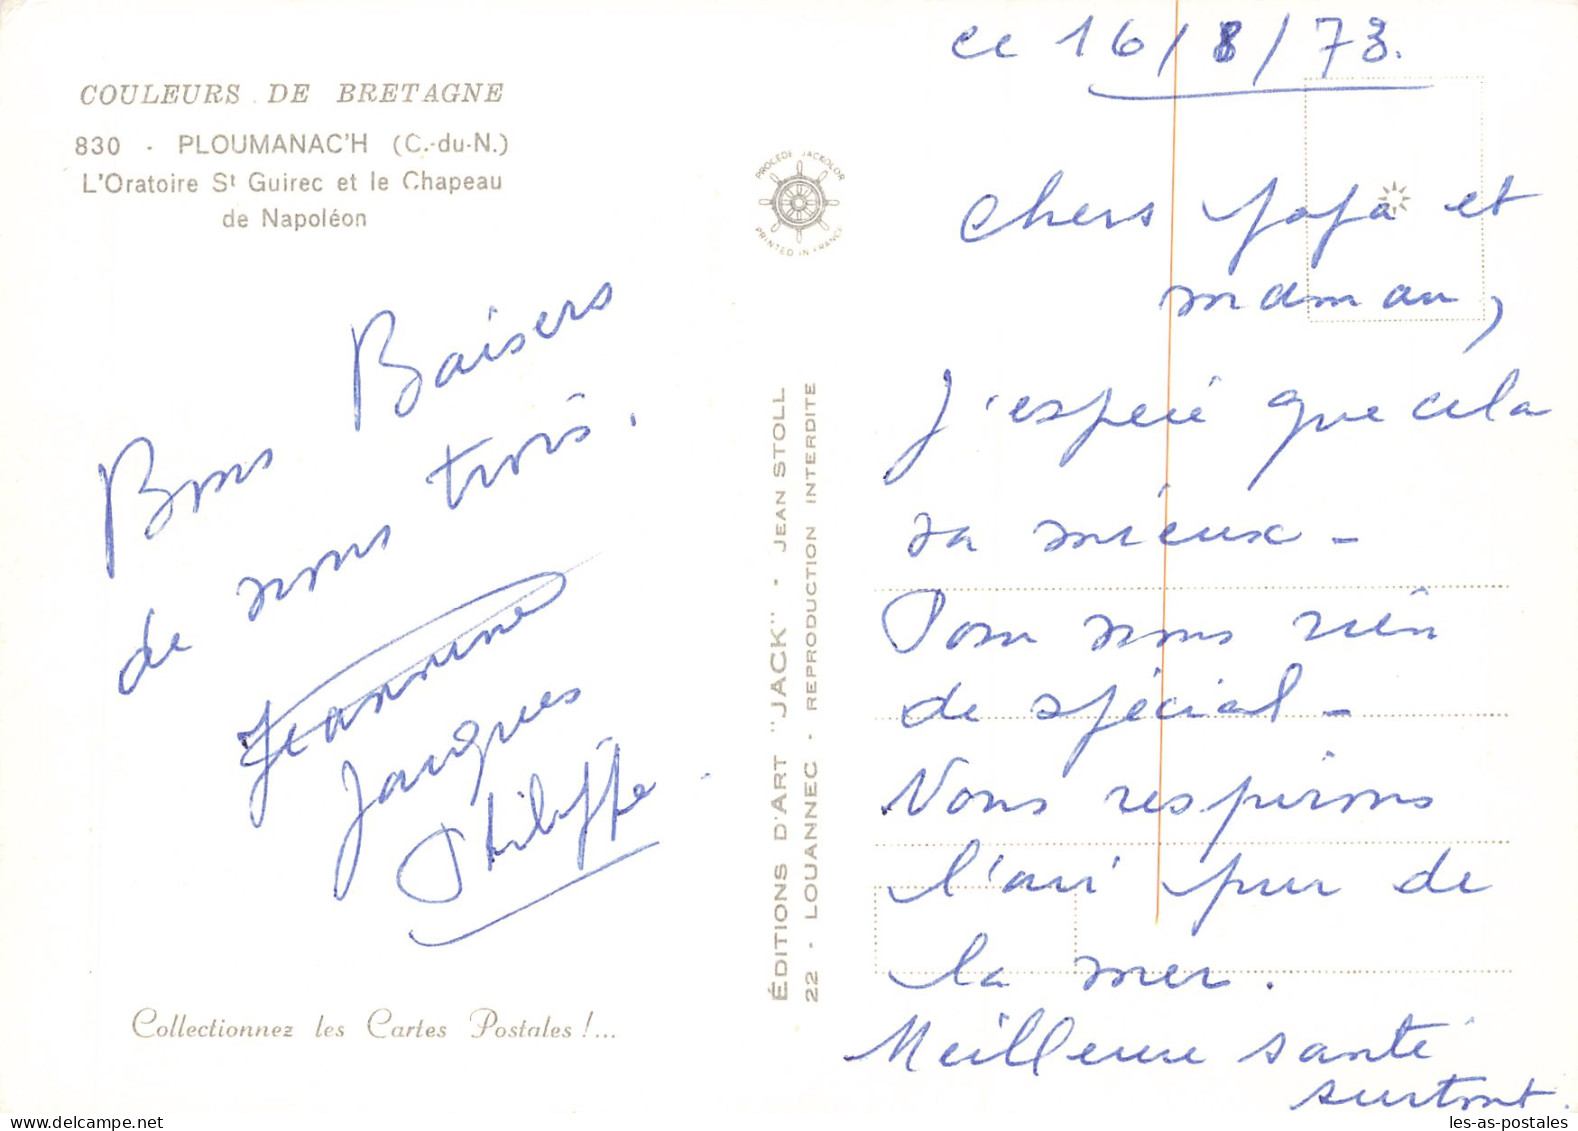 COULEURS DE BRETAGNE
830 - PLOUMANAC'H (C.-du-N.)
L'Oratoire St Guirec et le Chapeau
de Napoléon
Bons Baisers
de nous trois.
Jeannine
Jacques
Philippe
Collectionnez les Cartes Postales !...
PROCÉDÉ JACKOLOR
PRINTED IN FRANCE
ÉDITIONS D'ART "JACK" - JEAN STOLL
22 - LOUANNEC - REPRODUCTION INTERDITE
ce 16/8/73.
Chers papa et
maman,
J'espère que cela
va mieux -
Pour nous rien
de spécial -
Nous respirons
l'air pur de
la mer.
Meilleure santé
surtout.
les-as-postales